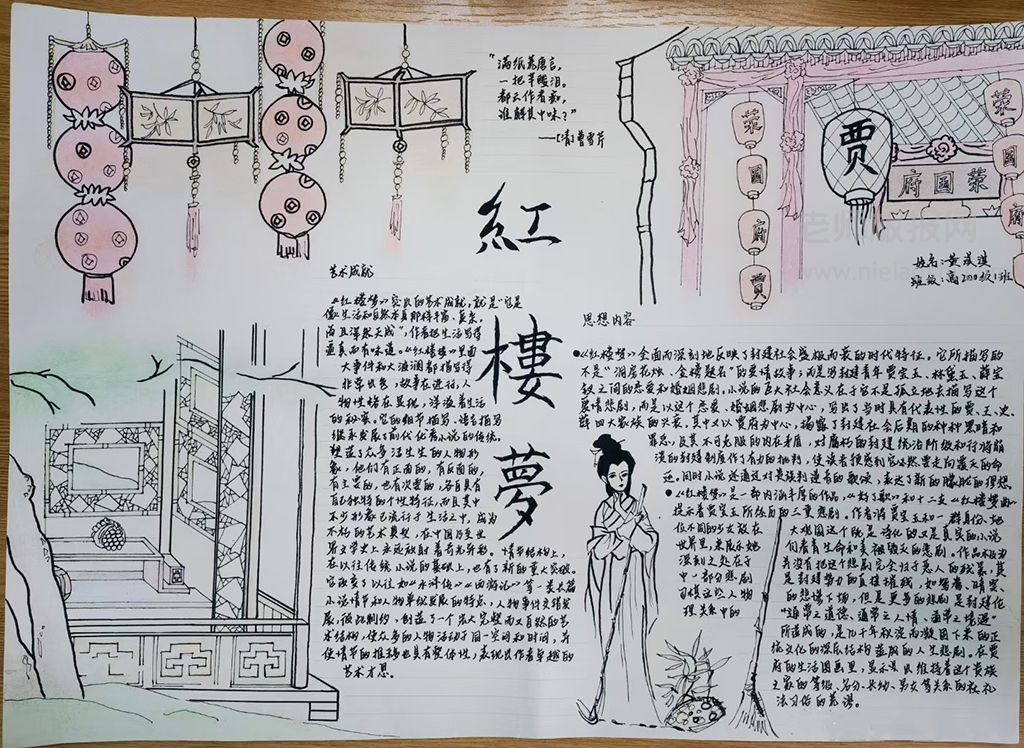 "满纸荒唐言，
一把辛酸泪。
都云作者痴，
谁解其中味？"
——[清]曹雪芹
紅
樓
夢
贾
荣
國
府
贾
荣
國
府
府國荣
姓名:黄
班级:高
老师板报网
艺术成就
《红楼梦》突出的艺术成就，就是"它是
像生活和自然本身那样丰富、复杂，
而且浑然天成"，作者把生活写得
逼真而有味道。《红楼梦》里面
大事件和大波澜都描写得
非常出色，故事在进行，人
物性格在显现，洋溢着生活
的秘密。它的细节描写、语言描写
继承发展了前代优秀小说的传统。
塑造了众多活生生的人物形
象，他们有正面的，有反面的，
有主要的，也有次要的，各自具有
自己独特的个性特征，而且其中
不少形象已流行于生活之中，成为
不朽的艺术典型，在中国乃至世
界文学史上永远放射着奇光异彩。情节结构上，
在以往传统小说的基础上，也有了新的重大突破。
它改变了以往如《水浒传》《西游记》等一类长篇
小说情节和人物单线发展的特点，
创造了一个宏大完整而又自然的艺
术结构，使众多的人物活动于同一空间和时间，并
使情节的推移也具有整体性，表现出作者卓越的
艺术才思。
思想内容
●《红楼梦》全面而深刻地反映了封建社会盛极而衰的时代特征。它所描写的
不是"洞房花烛、金榜题名"的爱情故事；而是写封建青年贾宝玉、林黛玉、薛宝
钗之间的恋爱和婚姻悲剧。小说的巨大社会意义在于它不是孤立地去描写这个
爱情悲剧，而是以这个恋爱、婚姻悲剧为中心，写出了当时具有代表性的贾、王、史、
薛四大家族的兴衰，其中又以贾府为中心，揭露了封建社会后期的种种黑暗和
罪恶，及其不可克服的内在矛盾，对腐朽的封建统治阶级和行将崩
溃的封建制度作了有力的批判，使读者预感到它必然要走向覆灭的命
运。同时小说还通过对贵族叛逆者的歌颂，表达了新的朦胧的理想。
●《红楼梦》是一部内涵丰厚的作品，《好了歌》和十二支《红楼梦曲》
提示着贾宝玉所经历的三重悲剧。作者将贾宝玉和一群身份、地
位不同的少女放在
大观园这个既是诗化的又是真实的小说
世界里，来展示她
们的青春生命和美被毁灭的悲剧。作品极为
深刻之处在于
并没有把这个悲剧完全归于恶人的残暴，其
中一部分悲剧
是封建势力的直接摧残，如鸳鸯、晴雯、
司棋这些人物
的悲惨下场，但是更多的悲剧是封建伦
理关系中的
"通常之道德、通常之人情、通常之境遇"
所造成的，是几千年积淀而凝固下来的正
统文化的深层结构造成的人生悲剧。在贾
府的生活图画里，显示出维持着这个贵族
之家的等级、名分、长幼、男女等关系的礼
法习俗的荒谬。